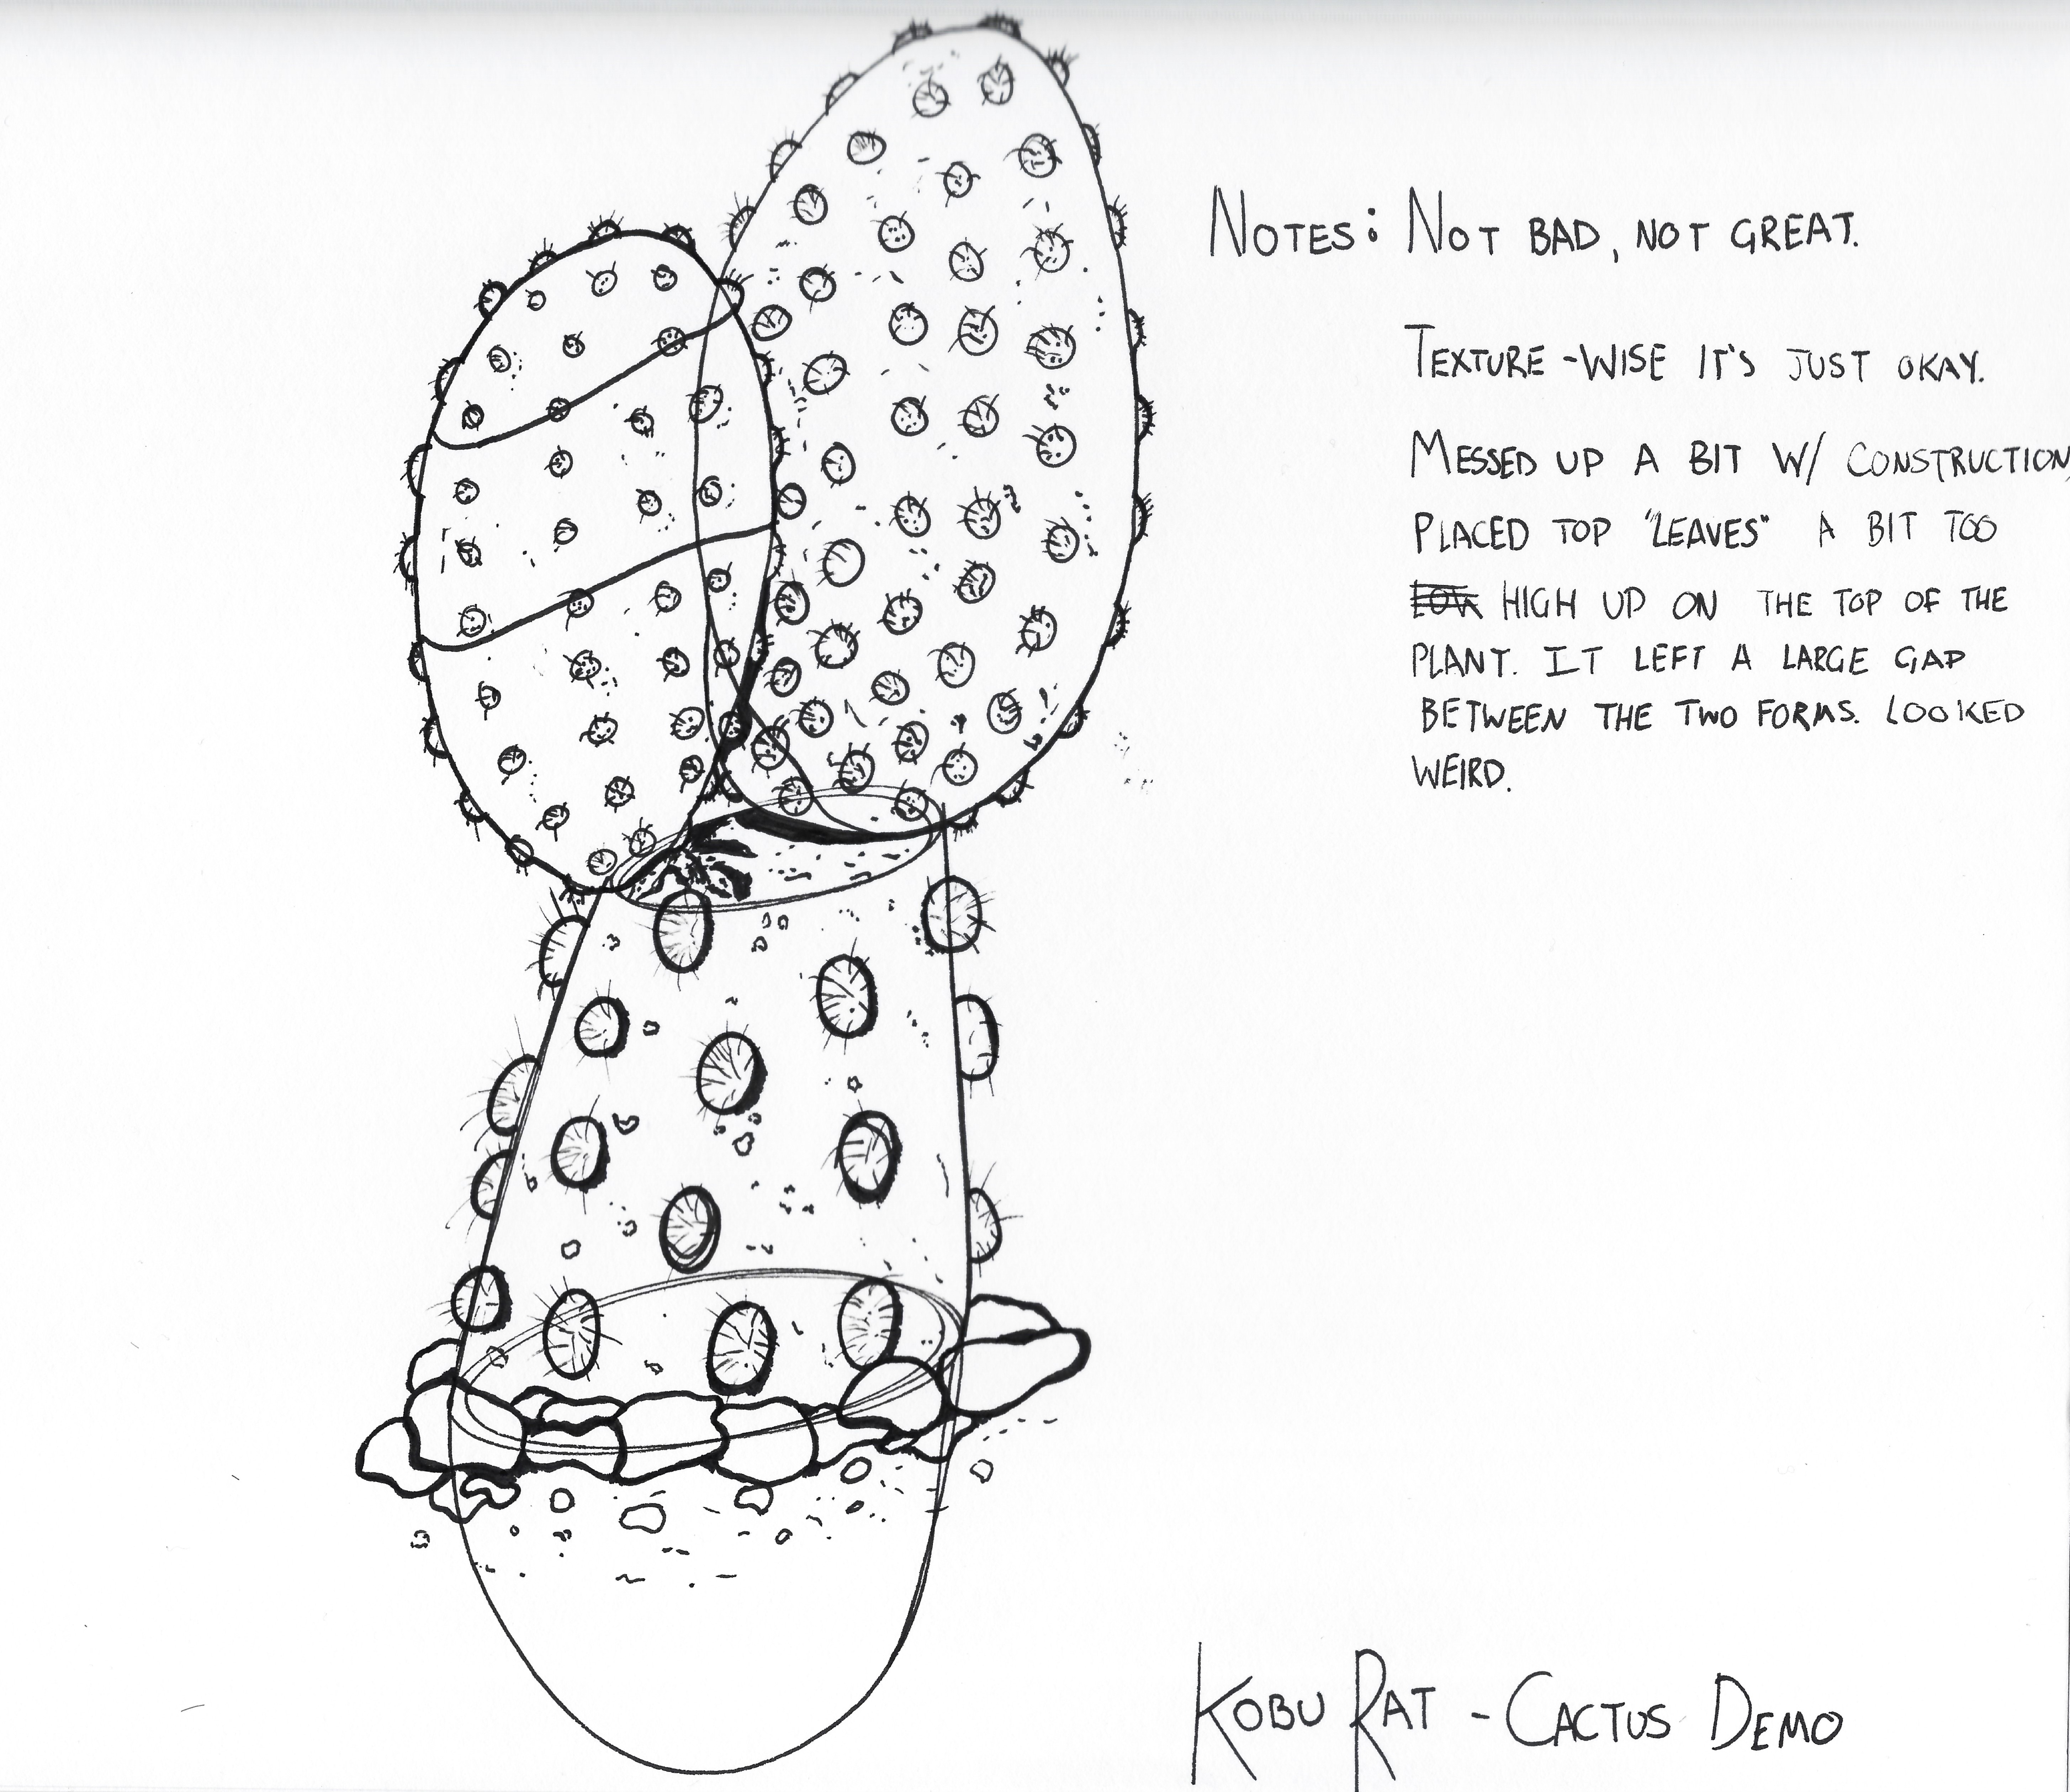 NOTES: NOT BAD, NOT GREAT.
TEXTURE-WISE IT'S JUST OKAY.
MESSED UP A BIT W/ CONSTRUCTION,
PLACED TOP "LEAVES" A BIT TOO
HIGH UP ON THE TOP OF THE
PLANT. IT LEFT A LARGE GAP
BETWEEN THE TWO FORMS. LOOKED
WEIRD.
KOBU RAT - CACTUS DEMO